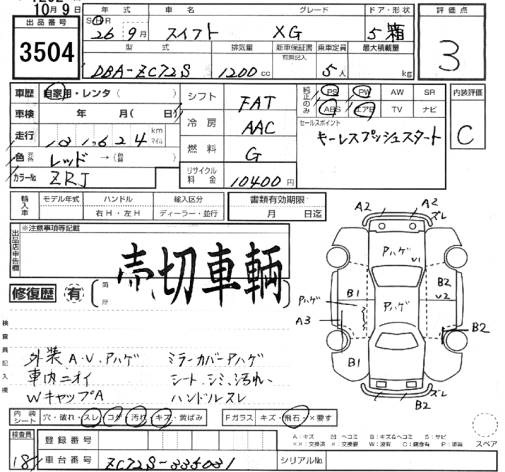 10月9日
年式 車名 グレード ドア・形状 評価点
出品番号 3504
S H R 26年9月 スイフト XG 5 箱 3
型式 排気量 新車保証書 乗車定員 最大積載量
有無記入
DBA-ZC72S 1200cc 5人 kg
車歴 自家用・レンタ( ) シフト FAT 純正のみ PS PW AW SR 内装評価
車検 年 月( 日) ABS エアB TV ナビ C
冷房 AAC セールスポイント
走行 101,624 km マイル キーレスプッシュスタート
色 レッド→( ) 燃料 G
カラーNo ZRJ リサイクル料金 10400円
輸入車 モデル年式 ハンドル 輸入区分 書類有効期限
右H・左H ディーラー・並行 月 日迄
出品店申告欄 ※注意事項等記載
売切車輌
修復歴 有 箇所
検査員記入欄
外装 A.V.アハゲ ミラーカバーアハゲ
車内ニオイ シート.シミ.汚れ.
WキャップA ハンドルスレ
A2 ズレ
A2
Pハゲ V1
B1 B2
Pハゲ Pハゲ V2
A3 B2
B1
B2 ズレ
内装シート 穴・破れ・スレ コゲ 汚れ キズ 黄ばみ Fガラス キズ・飛石 ×要す
A:キズ U:ヘコミ B:キズ&ヘコミ S:サビ
××:交換済 ×:交換要 W:波有 C:腐食有 P:塗装 スペア
検査員 18 登録番号
車台番号 ZC72S-335031 シリアルNo